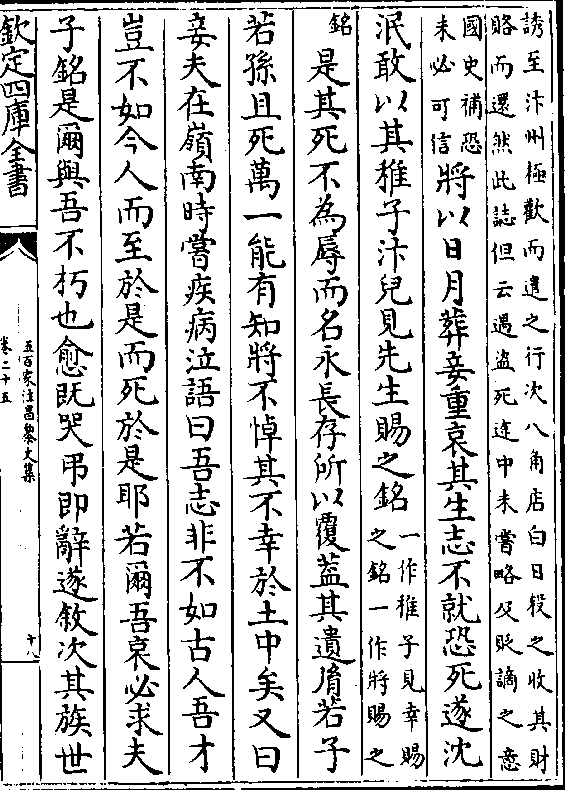 誘至汴州極歡而遣之行次八角店白日殺之收其財
賂而還然此誌但云遇盜死途中未嘗略及貶謫之意
國史補恐
未必可信
將以日月葬妾重哀其生志不就恐死遂沈
泯敢以其稚子汴兒見先生賜之銘
一作稚子見幸賜
之銘一作將賜之
銘
是其死不為辱而名永長存所以覆蓋其遺𦙍若子
若孫且死萬一能有知將不悼其不幸於土中矣又曰
妾夫在嶺南時嘗疾病泣語曰吾志非不如古人吾才
豈不如今人而至於是而死於是耶若爾吾哀必求夫
子銘是爾與吾不朽也愈既哭弔即辭遂敘次其族世
欽定四庫全書
五百家注昌黎文集
卷二十五
十八